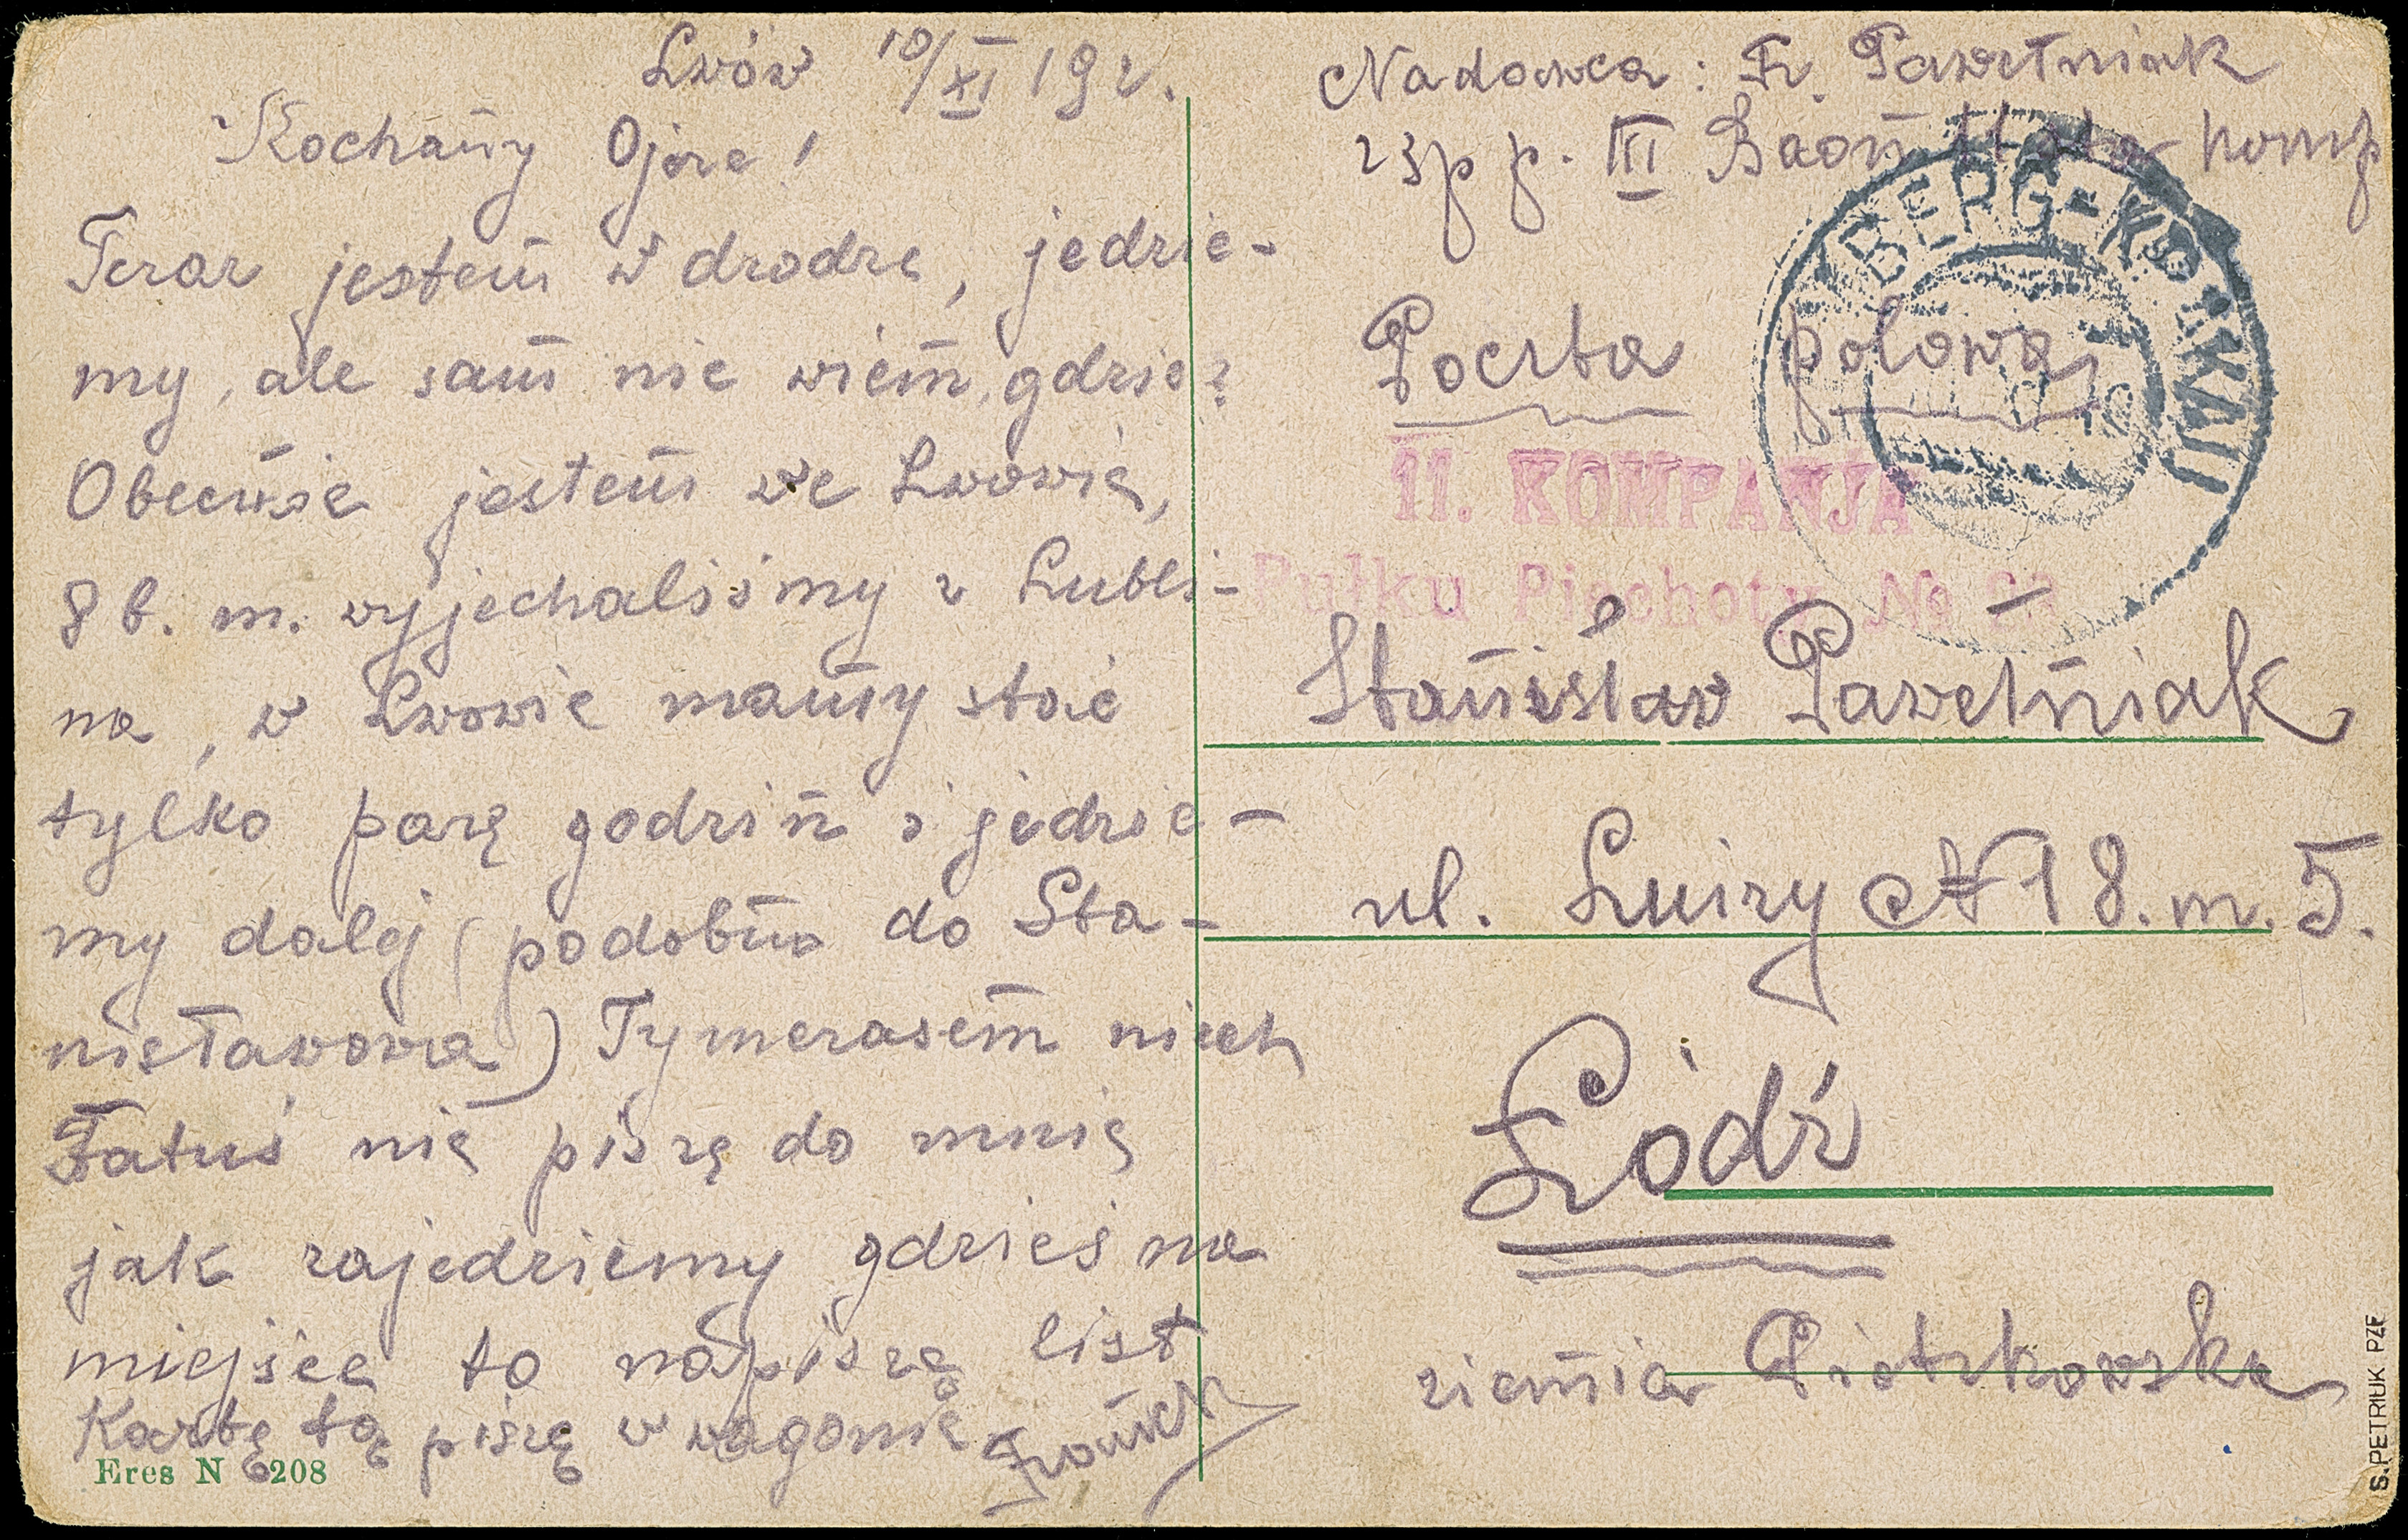 Lwów 10/XI 19 r.
Kochany Ojcze!
Teraz jestem w drodze, jedzie-
my, ale sam nie wiem, gdzie?
Obecnie jestem we Lwowie,
8 b. m. wyjechaliśmy z Lubli-
na, w Lwowie mamy stać
tylko parę godzin i jedzie-
my dalej (podobno do Sta-
nisławowa) Tymczasem niech
Tatuś nie piszę do mnie
jak zajedziemy gdzieś na
miejsce to napiszę list
Kartę tą piszę w wagonie Franek
Eres N 208
Nadawca: Fr. Pawełniak
23 p p. III Baon 11-ta komp
Poczta polowa
BERG-KRAKAU
11. KOMPANJA
Pułku Piechoty №
Stanisław Pawełniak
ul. Luizy № 18. m. 5.
Łódź
ziemia Piotrkowska
S.PETRIUK PZF